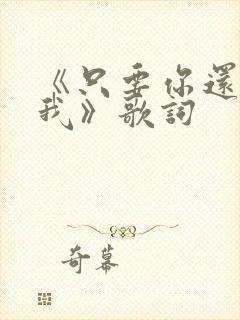 《只要你還
我》歌詞
奇幕